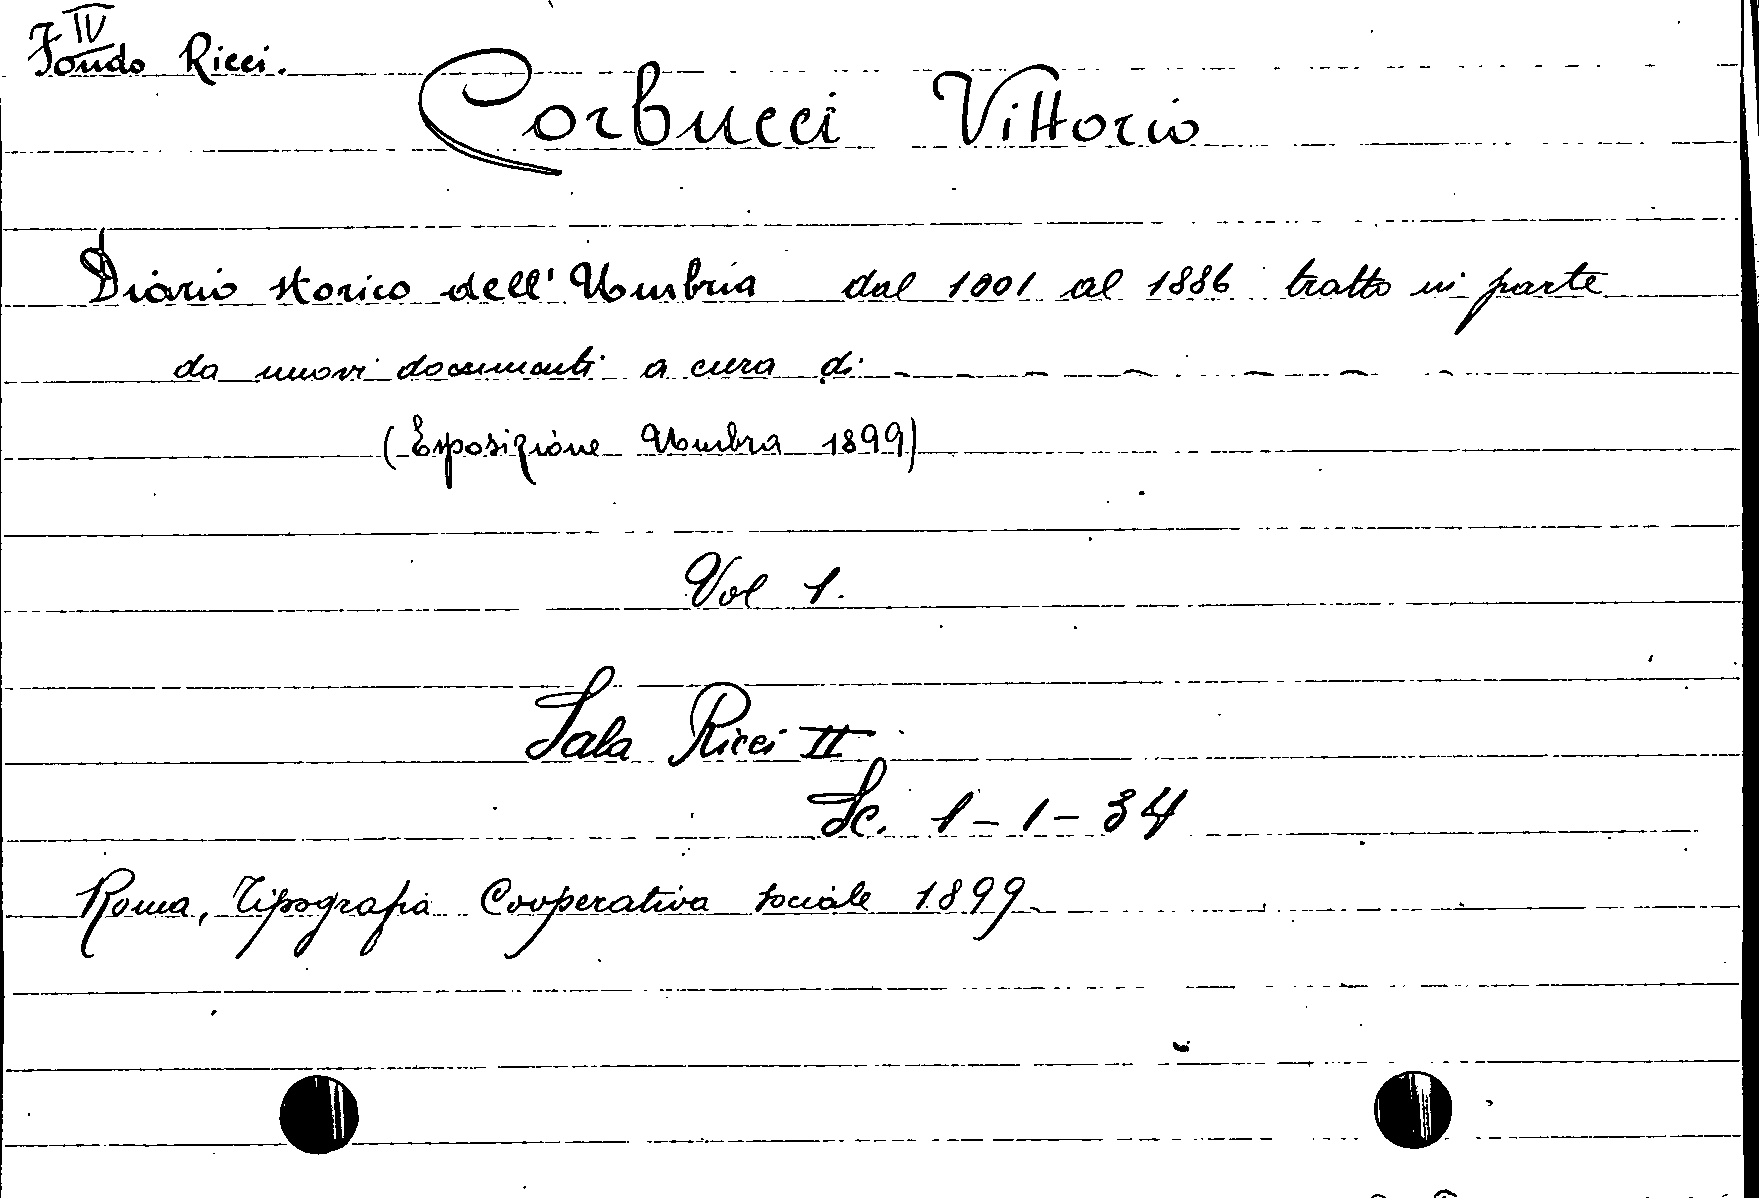 IV
Fondo Ricci.
Corbucci Vittorio
Diario storico dell' Umbria dal 1001 al 1886 tratto in parte
da nuovi documenti a cura di - - - - - - -
(Esposizione Umbra 1899)
Vol 1.
Sala Ricci II
Sc. 1-1-34
Roma, Tipografia Cooperativa sociale 1899